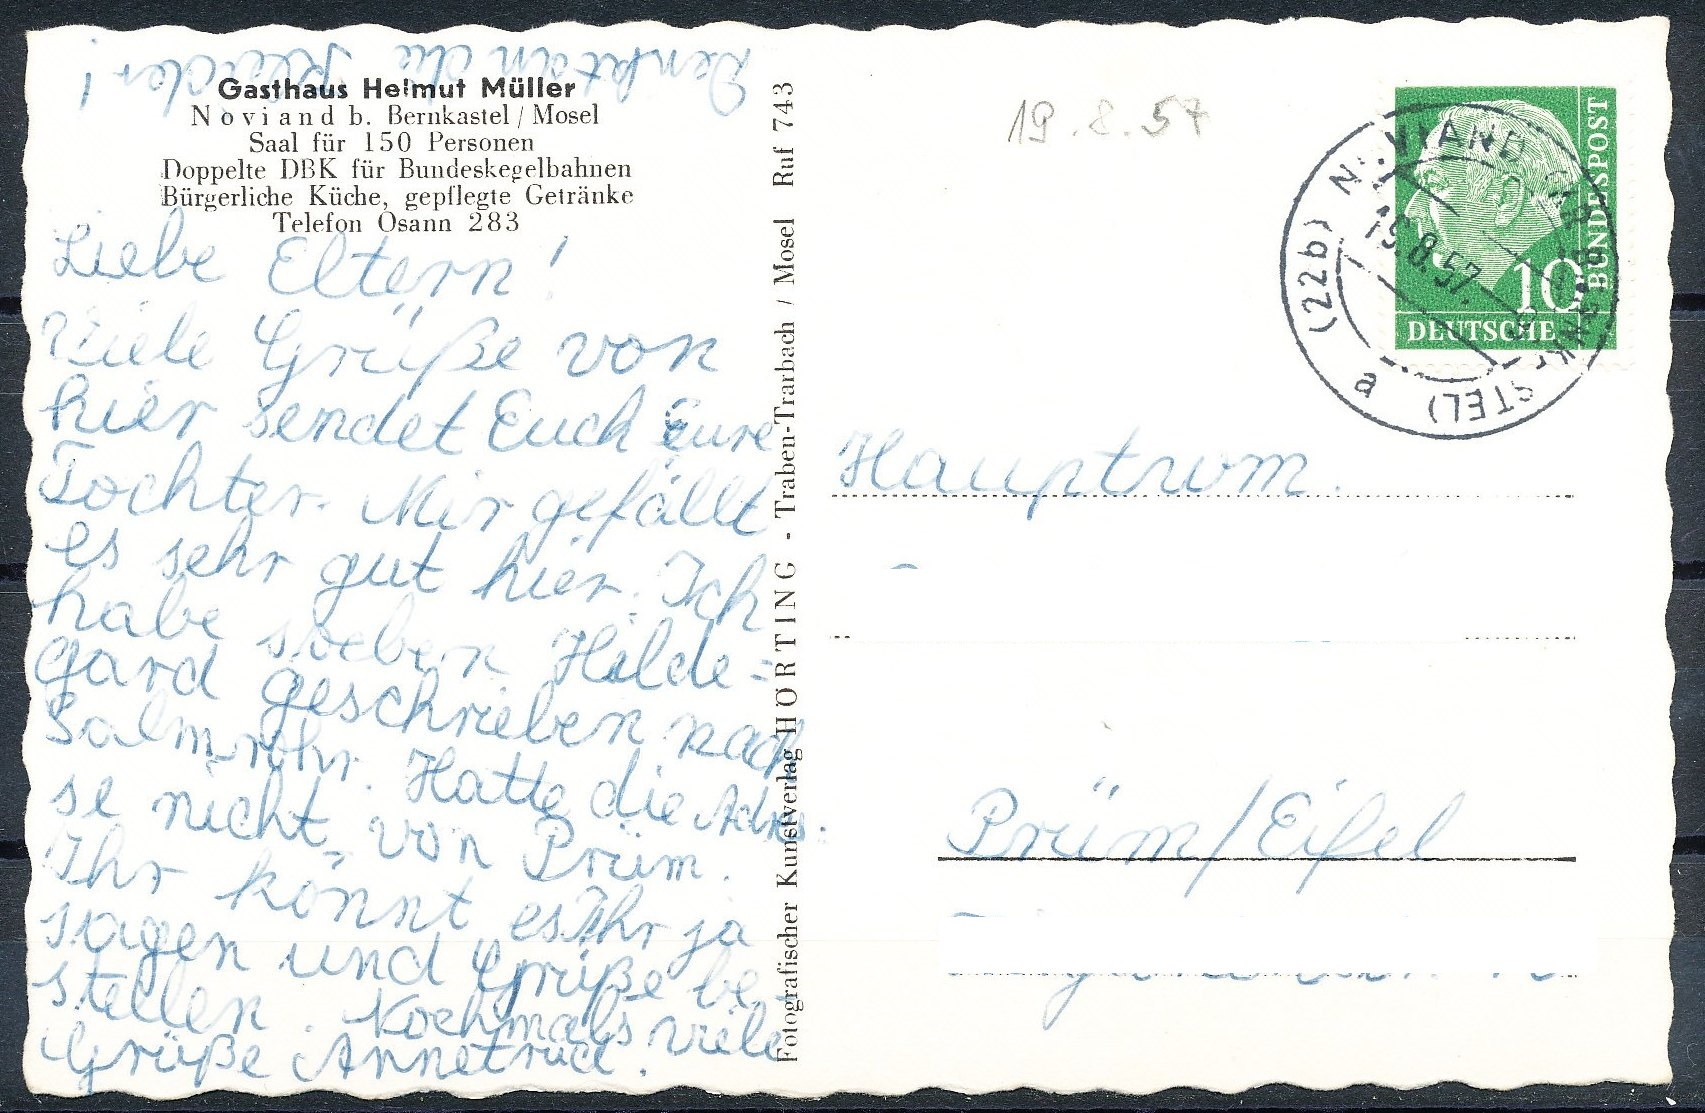 Denkt an die Kleider!
Gasthaus Helmut Müller
Noviand b. Bernkastel / Mosel
Saal für 150 Personen
Doppelte DBK für Bundeskegelbahnen
Bürgerliche Küche, gepflegte Getränke
Telefon Osann 283
Liebe Eltern!
Viele Grüße von
hier sendet Euch Eure
Tochter. Mir gefällt
es sehr gut hier. Ich
habe soeben Hilde=
gard geschrieben nach
Salmrohr. Hatte die Adres-
se nicht von Prüm.
Ihr könnt es Ihr ja
sagen und Grüße be-
stellen. Nochmals viele
Grüße Annetrud.
Fotografischer Kunstverlag HORTING - Traben-Trarbach / Mosel Ruf 743
19.8.57
DEUTSCHE BUNDESPOST
10
(22b) NOVIAND (BERNKASTEL) a
19.8.57
Hauptwm.
Prüm/Eifel